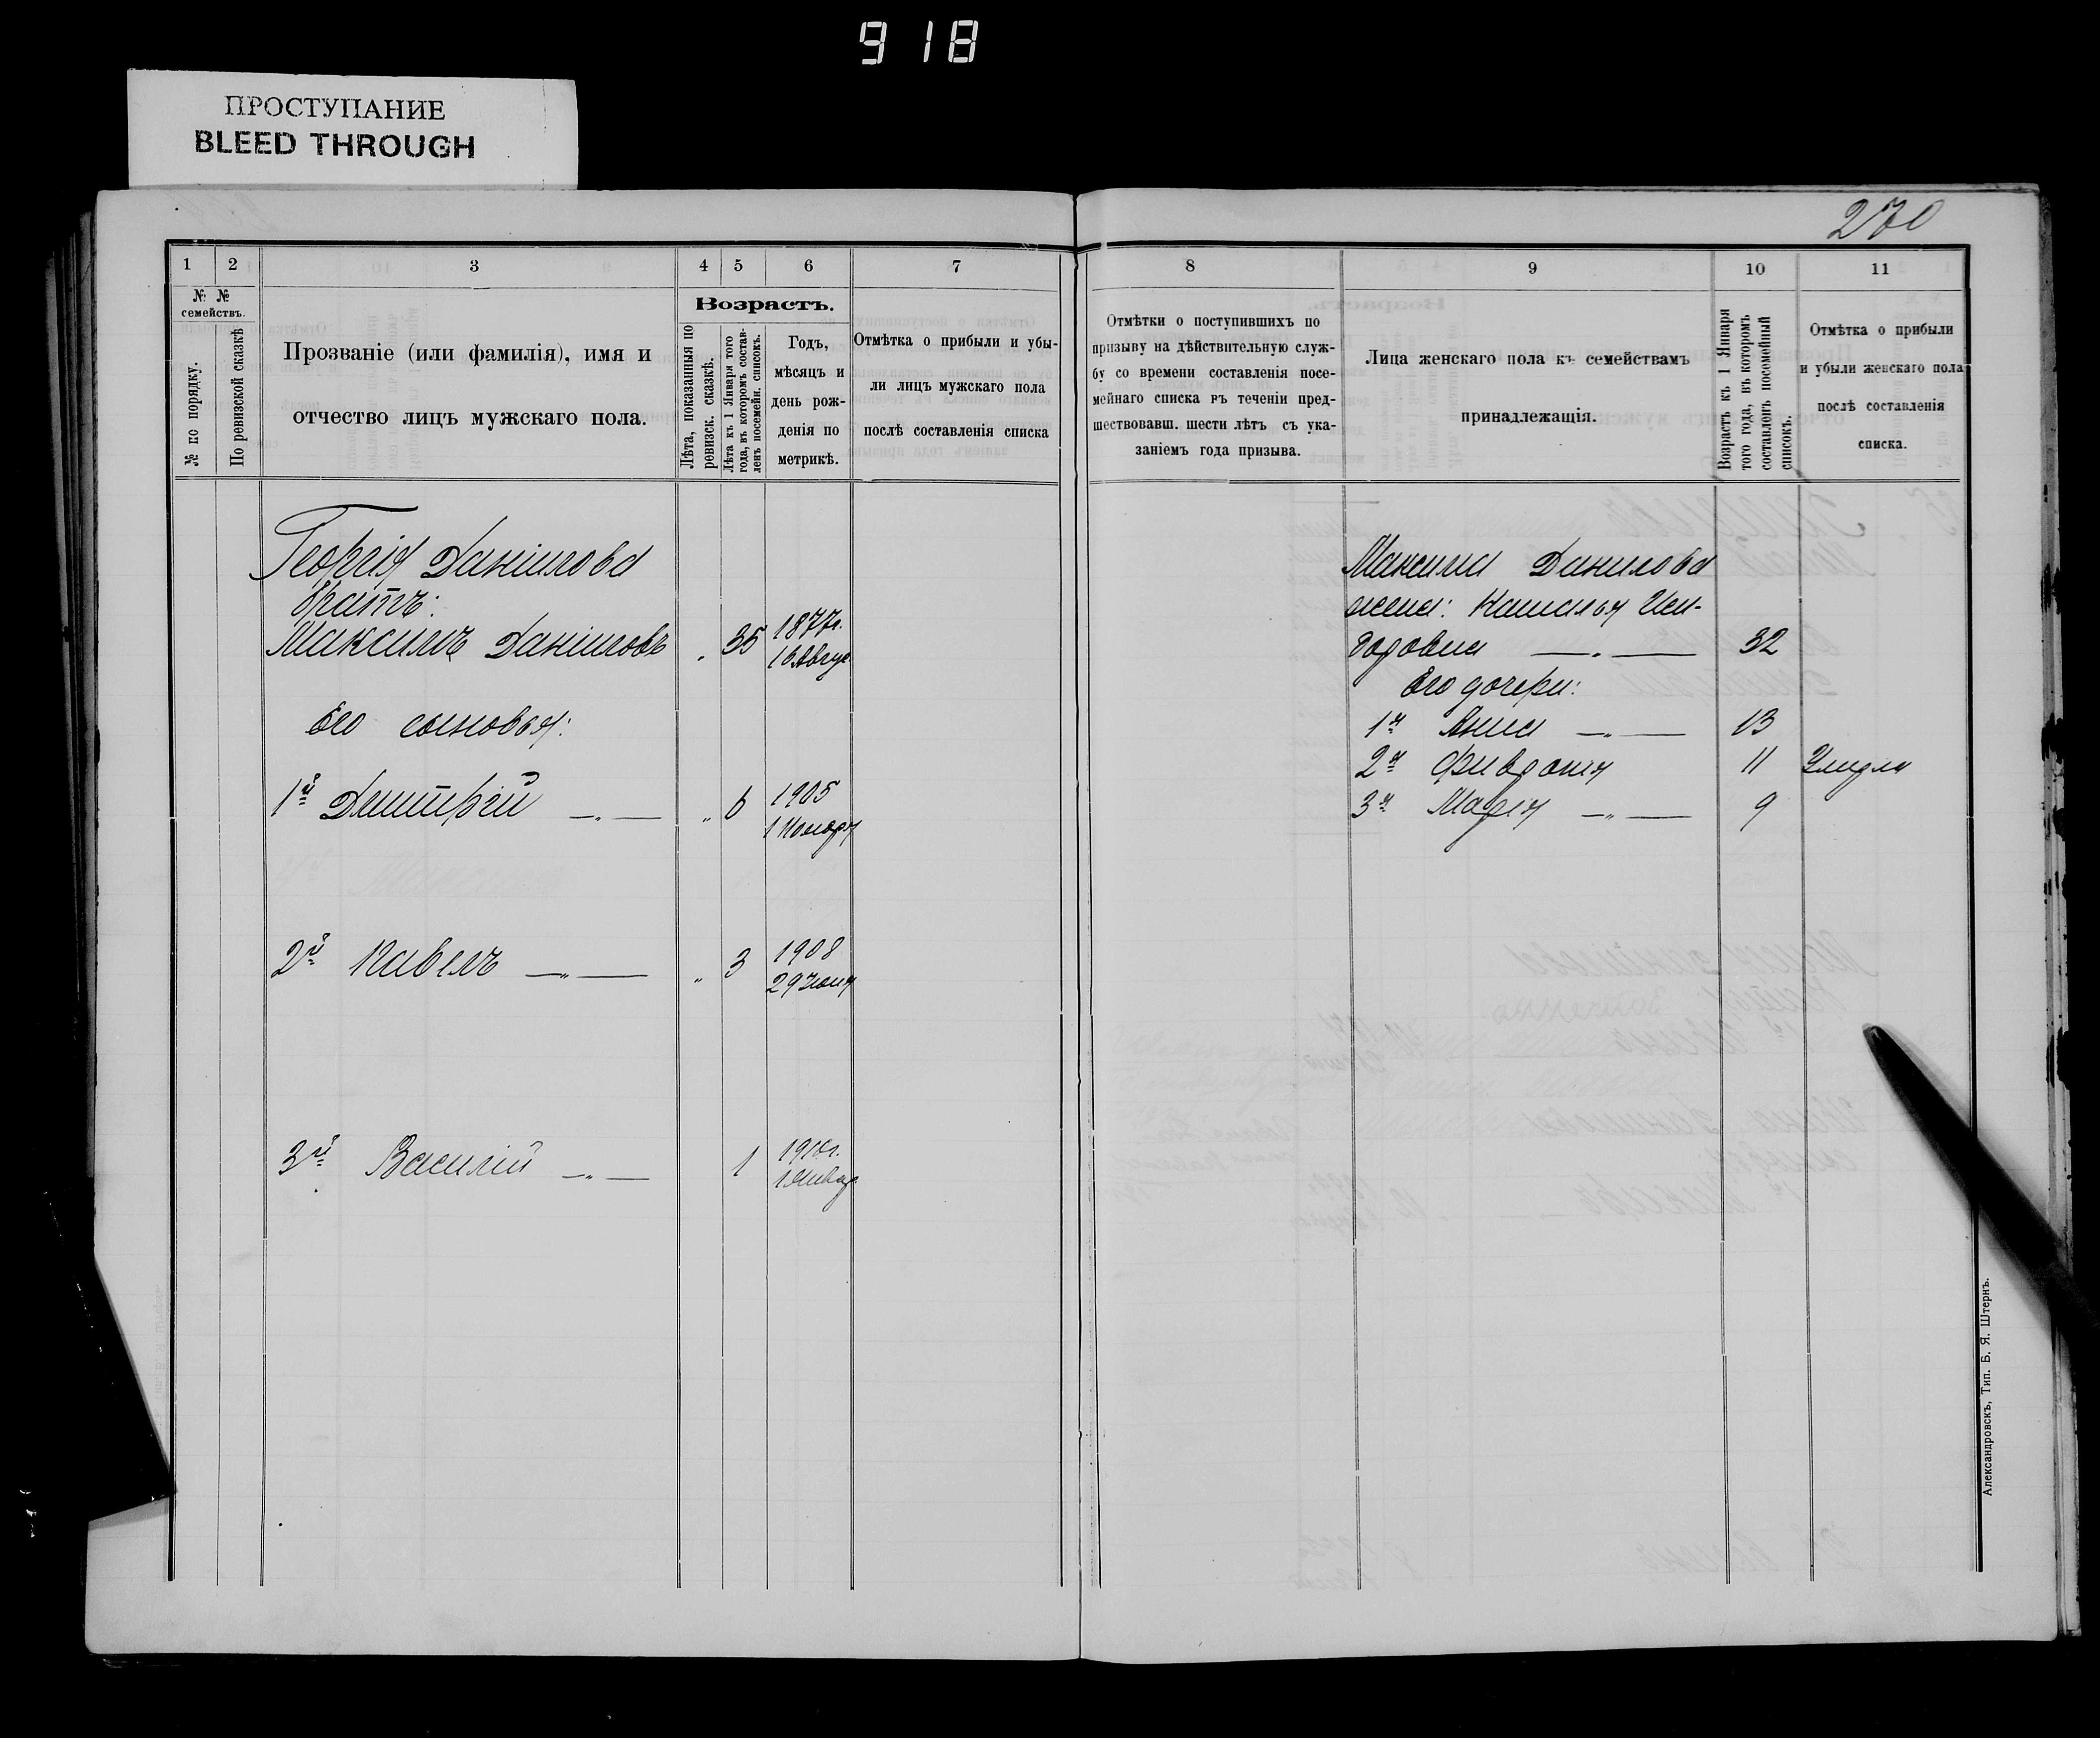 918
ПРОСТУПАНИЕ
BLEED THROUGH
270
1 2 3 4 5 6 7
№ №
семействъ.
№ по порядку.
По ревизской сказкѣ
Прозваніе (или фамилія), имя и
отчество лицъ мужскаго пола.
Возрастъ.
Лѣта, показанныя по
ревизск. сказкѣ.
Лѣта къ 1 Января того
года, въ которомъ состав-
ленъ посемейн. списокъ.
Годъ,
мѣсяцъ и
день рож-
денія по
метрикѣ.
Отмѣтка о прибыли и убы-
ли лицъ мужскаго пола
послѣ составленія списка
Георгія Даніилова
братъ:
Максимъ Даніиловъ " 35 1877г.
16 Авгус
Его сыновья:
1й Дмитрій —"— " 6 1905
1 Ноября
2й Павелъ —"— " 3 1908
29 Іюня
3й Василій —"— 1 1910г.
1 Январ
8 9 10 11
Отмѣтки о поступившихъ по
призыву на дѣйствительную служ-
бу со времени составленія посе-
мейнаго списка въ теченіи пред-
шествовавш. шести лѣтъ съ ука-
заніемъ года призыва.
Лица женскаго пола къ семействамъ
принадлежащія.
Возрастъ къ 1 Января
того года, въ которомъ
составленъ посемейный
списокъ.
Отмѣтка о прибыли
и убыли женскаго пола
послѣ составленія
списка.
Максима Данилова
жена: Наталья Иси-
доровна —"— 32
Его дочери:
1я Анна —"— 13
2я Февронія 11
3я Марія —"— 9
Александровскъ, Тип. Б. Я. Штернъ.